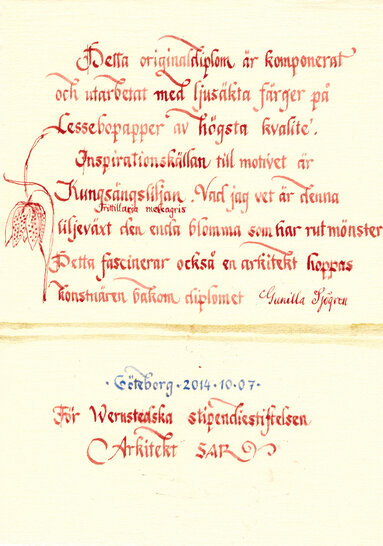 Detta originaldiplom är komponerat
och utarbetat med ljusäkta färger på
Lessebopapper av högsta kvalité.
Inspirationskällan till motivet är
Kungsängsliljan. Vad jag vet är denna
Fritillaria meleagris
liljeväxt den enda blomma som har rutmönster
Detta fascinerar också en arkitekt hoppas
konstnären bakom diplomet Gunilla Sjögren
· Göteborg · 2014 · 10 · 07 ·
För Wernstedska stipendiestiftelsen
Arkitekt SAR